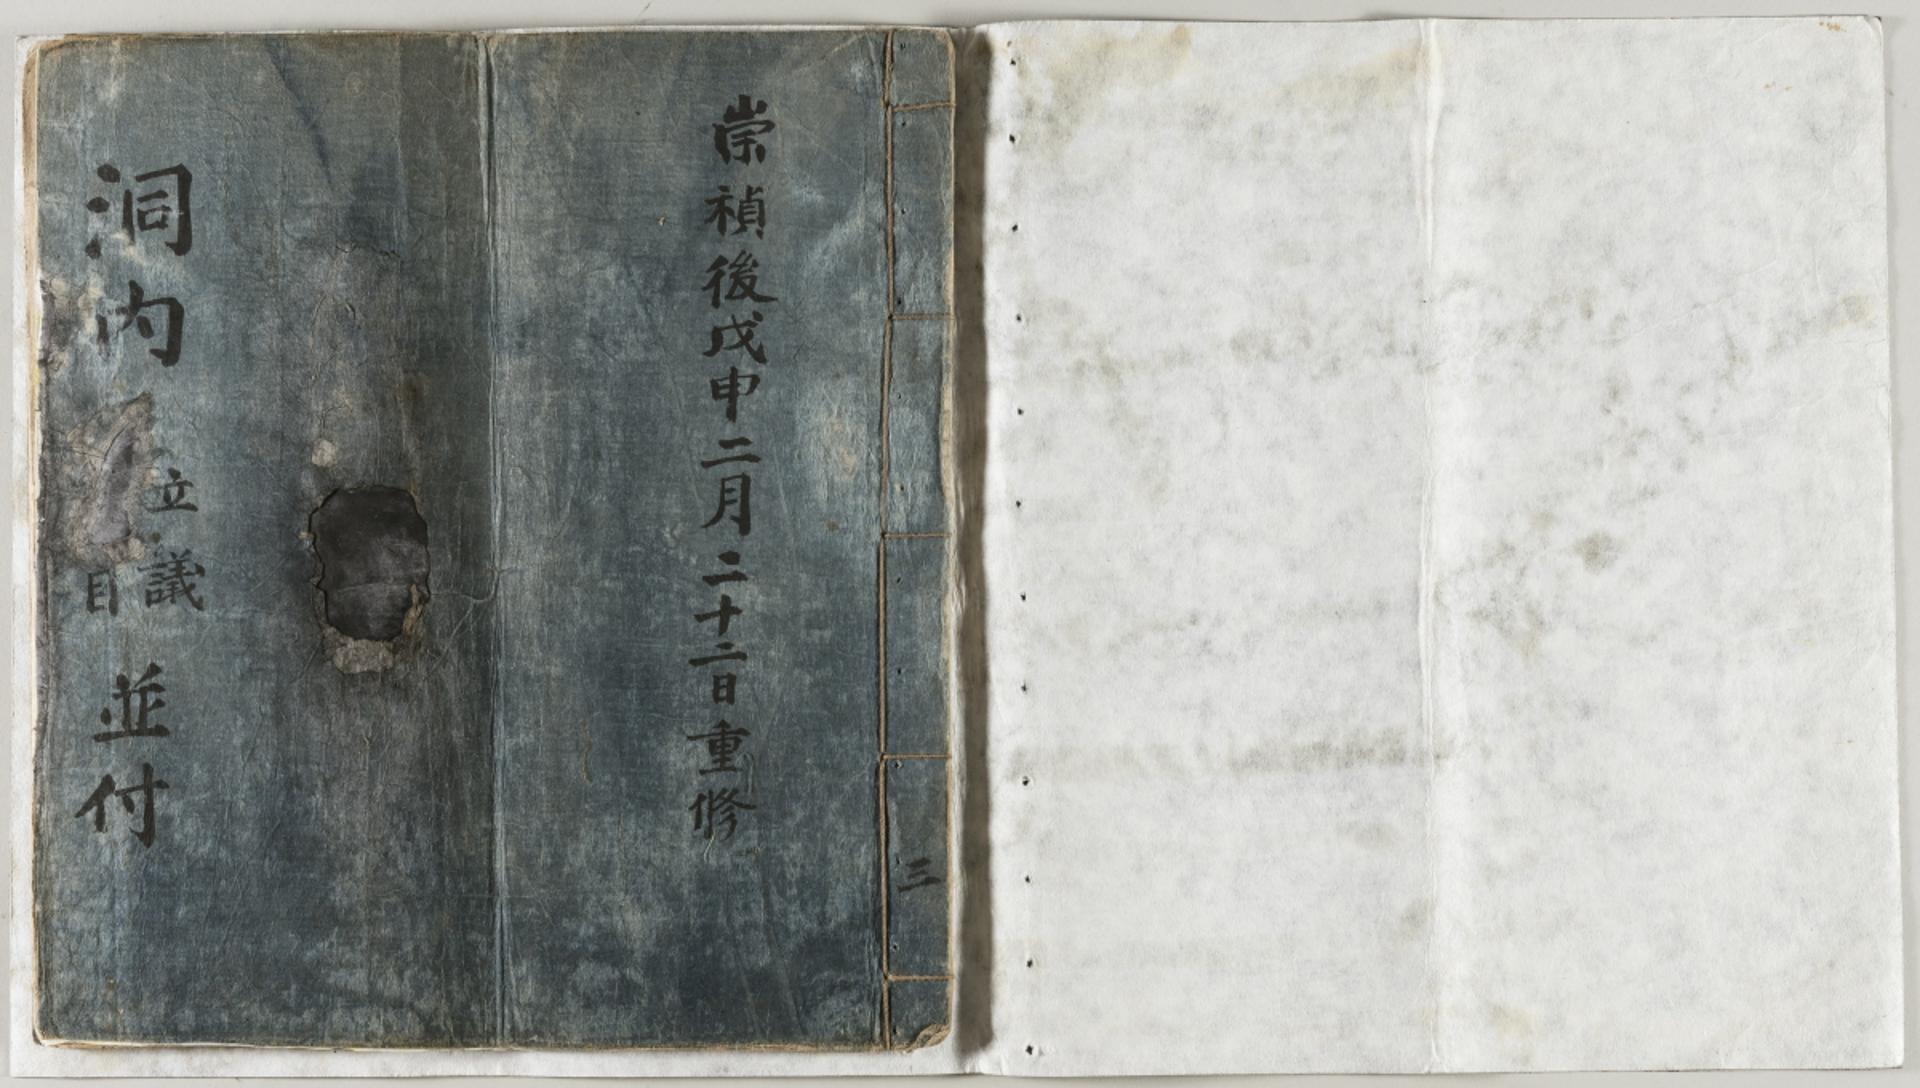 崇禎後戊申二月二十二日重修
洞内
立議
目
並付
三